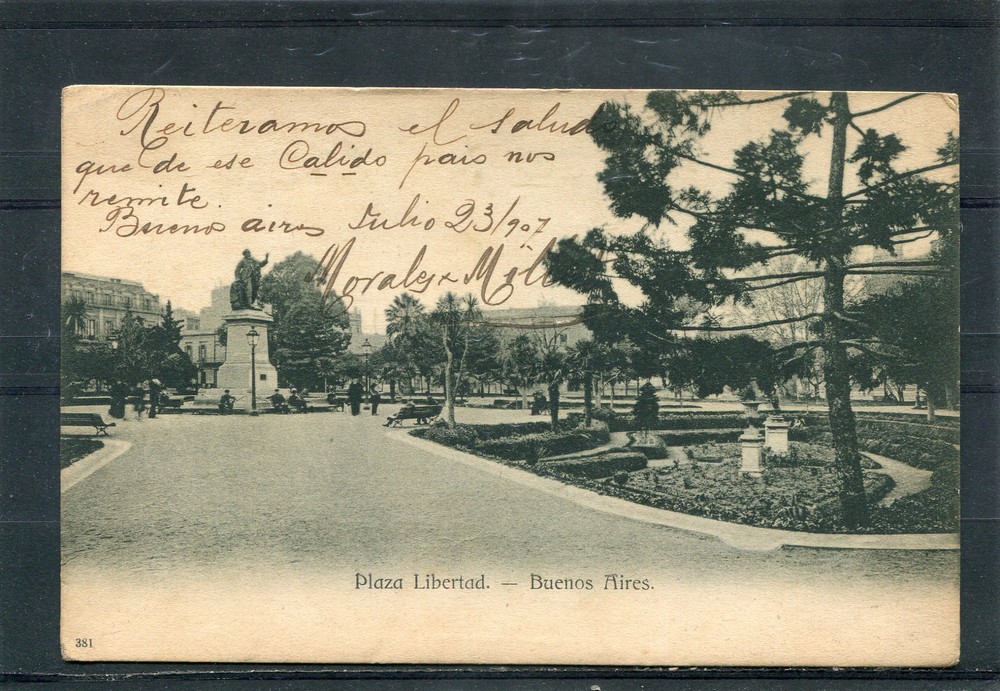 Reiteramos el saludo
que de ese Calido pais nos
remite.
Buenos aires Julio 23/907
Morales
Plaza Libertad. — Buenos Aires.
381